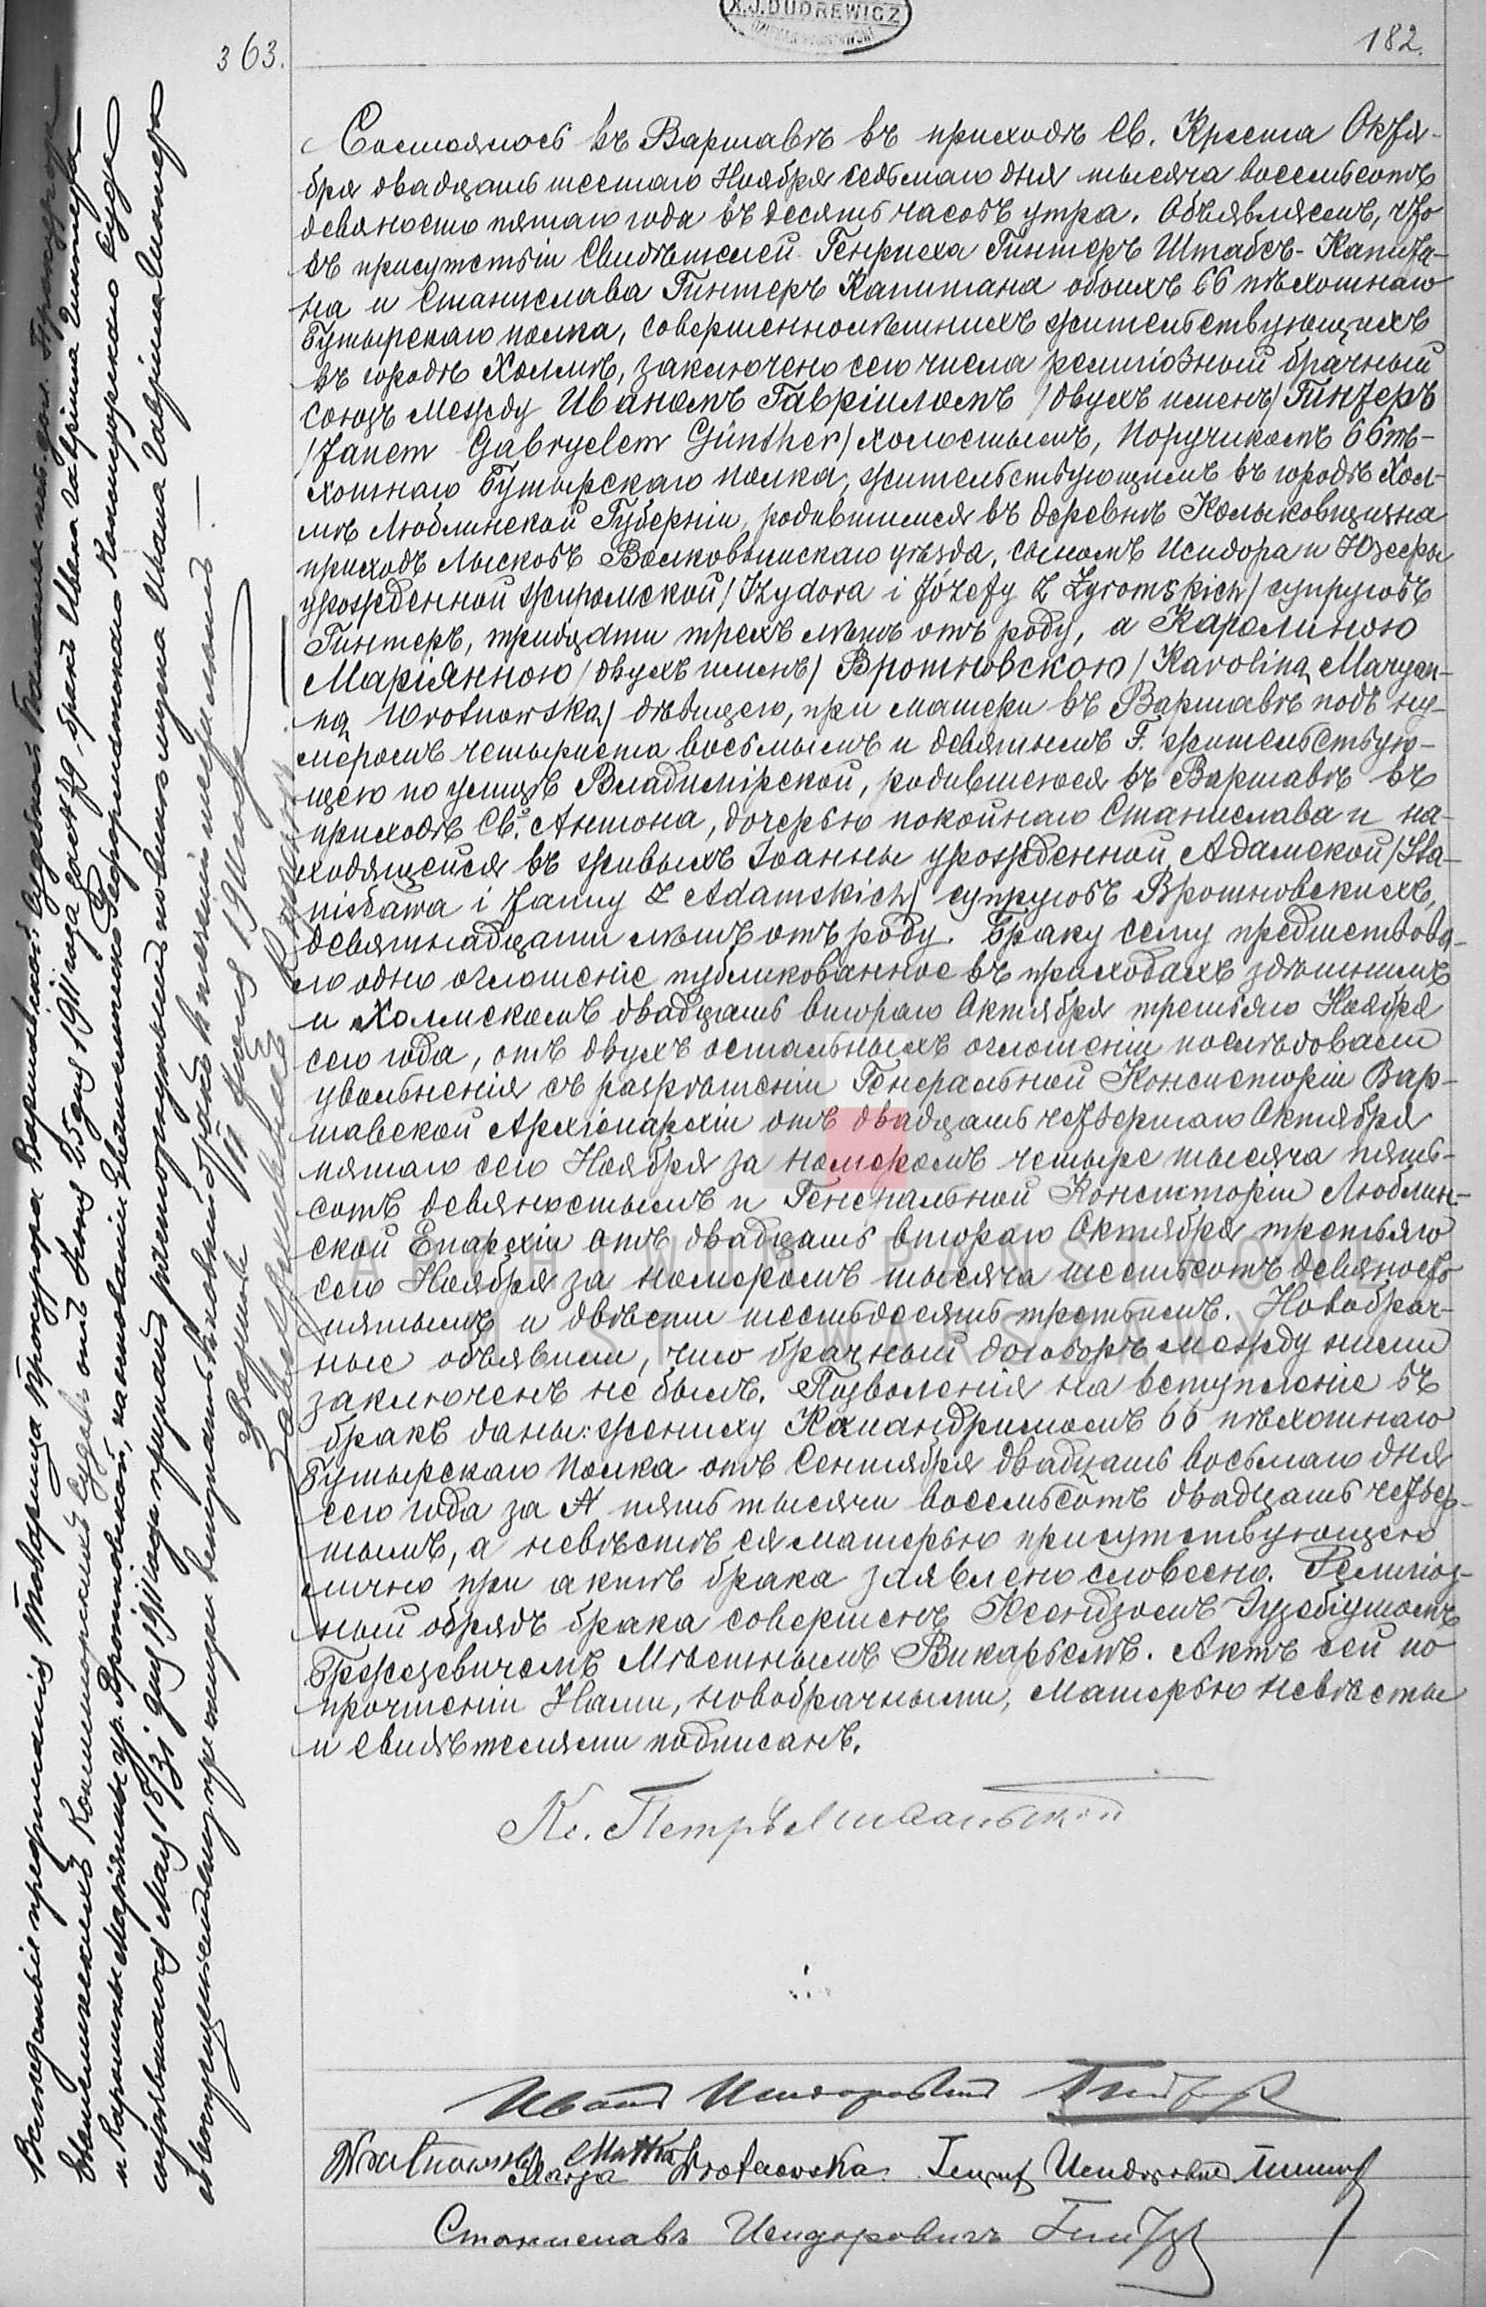 X.J.DUDREWICZ
182.
363.
Состоялось въ Варшавѣ въ приходѣ Св. Креста Октя-
бря двадцать шестаго Ноября седьмаго дня тысяча восемьсотъ
девяносто пятаго года въ десять часовъ утра. Объявляемъ, что
въ присутствіи Свидѣтелей Генриха Гинтеръ Штабсъ-Капита-
на и Станислава Гинтеръ Капитана обоихъ 66 пѣхотнаго
Бутырскаго полка, совершеннолѣтнихъ жительствующихъ
въ городѣ Холмѣ, заключенъ сего числа религіозный брачный
союзъ между Иваномъ Гавріиломъ /двухъ именъ/ Гинтеръ
/Janem Gabryelem Günther/ холостымъ, Поручикомъ 66 пѣ-
хотнаго Бутырскаго полка, жительствующимъ въ городѣ Хол-
мѣ Люблинской Губерніи, родившимся въ деревнѣ Колыковщизна
приходѣ Лысковъ Волковышскаго уѣзда, сыномъ Исидора и Юзефы
урожденной Жиромской /Izydora i Józefy z Zyromskich/ супруговъ
Гинтеръ, тридцати трехъ лѣтъ отъ роду, а Каролиною
Маріянною /двухъ именъ/ Вротновскою /Karoliną Maryan-
ną Wrotnowską/ дѣвицею, при матери въ Варшавѣ подъ ну-
меромъ четыриста восьмымъ и девятымъ F. жительствую-
щею по улицѣ Владимірской, родившеюся въ Варшавѣ въ
приходѣ Св. Антона, дочерью покойнаго Станислава и на-
ходящейся въ живыхъ Іоанны урожденной Адамской /Sta-
nisława i Janny z Adamskich/ супруговъ Вротновскихъ,
девятнадцати лѣтъ отъ роду. Браку сему предшествова-
ло одно оглашеніе публикованное въ приходахъ здѣшнимъ
и Холмскомъ двадцать втораго Октября третьяго Ноября
сего года, отъ двухъ остальныхъ оглашеніи послѣдовали
увольненія съ разрѣшеніи Генеральной Консисторіи Вар-
шавской Архіепархіи отъ двадцать четвертаго Октября
пятаго сего Ноября за номеромъ четыре тысяча пять-
сотъ девяностымъ и Генеральной Консисторіи Люблин-
ской Епархіи отъ двадцать втораго Октября третьяго
сего Ноября за номеромъ тысяча шестьсотъ девяносто
пятымъ и двѣсти шестьдесятъ третьимъ. Новобрач-
ные объявили, что брачный договоръ между ними
заключенъ не былъ. Позволенія на вступленіе въ
бракъ даны: жениху Командиромъ 66 пѣхотнаго
Бутырскаго полка отъ Сентября двадцать восьмаго дня
сего года за N пять тысячи восемьсотъ двадцать четвер-
тымъ, а невѣстѣ ея матерью присутствующею
лично при актѣ брака заявлено словесно. Религіоз-
ный обрядъ брака совершенъ Ксендзомъ Іузебіушомъ
Бржезевичемъ Мѣстнымъ Викарьемъ. Актъ сей по
прочтеніи Нами, новобрачными, матерью невѣсты
и свидѣтелями подписанъ.
Кс. Петръ
Иванъ Исидоровичъ Гинтеръ
Matka Wrotnowska Исидоровичъ
Станиславъ Исидоровичъ Гинтеръ
Вслѣдствіе предписанія Товарища Прокурора Варшавскаго
отъ Іюня 25 дня 1911 года бракъ Ивана Гавріила Гинтера
и Каролины Маріянны ур. Вротновской, на основаніи Евангелическо-Реформатскаго Консисторскаго Суда
Мая 18/31 дня 1911 года
Варшава Іюля 1911 года
ARCHIWUM PAŃSTWOWE
M. ST. WARSZAWY